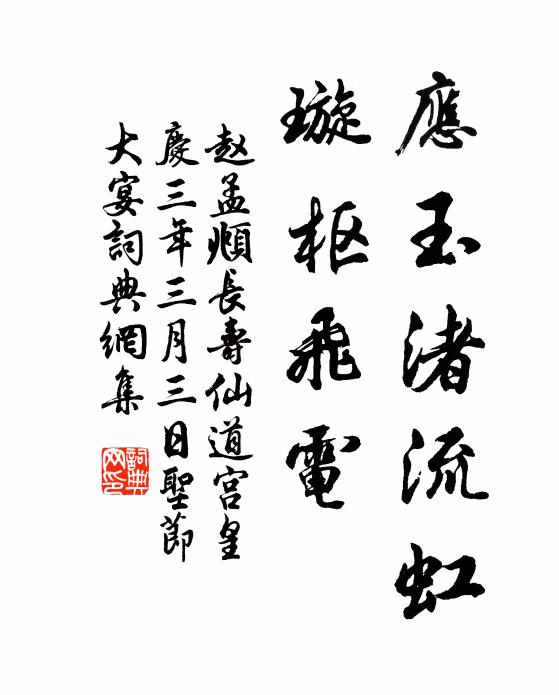 應玉渚流虹
璇枢飛電
赵孟頫長壽仙道宫皇
慶三年三月三日聖節
大宴詞典網集
詞典网印